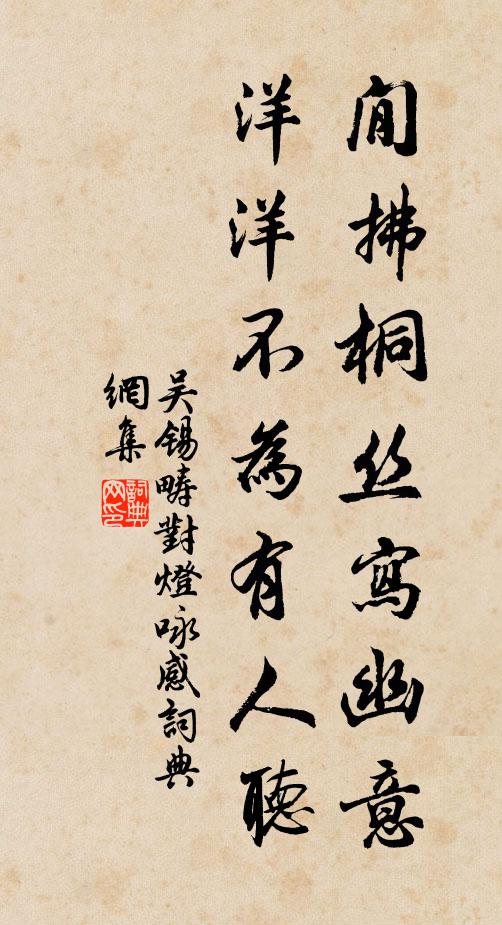 閒拂桐丝寫幽意
洋洋不為有人聽
吴锡疇對燈咏感詞典
網集
詞典
网印